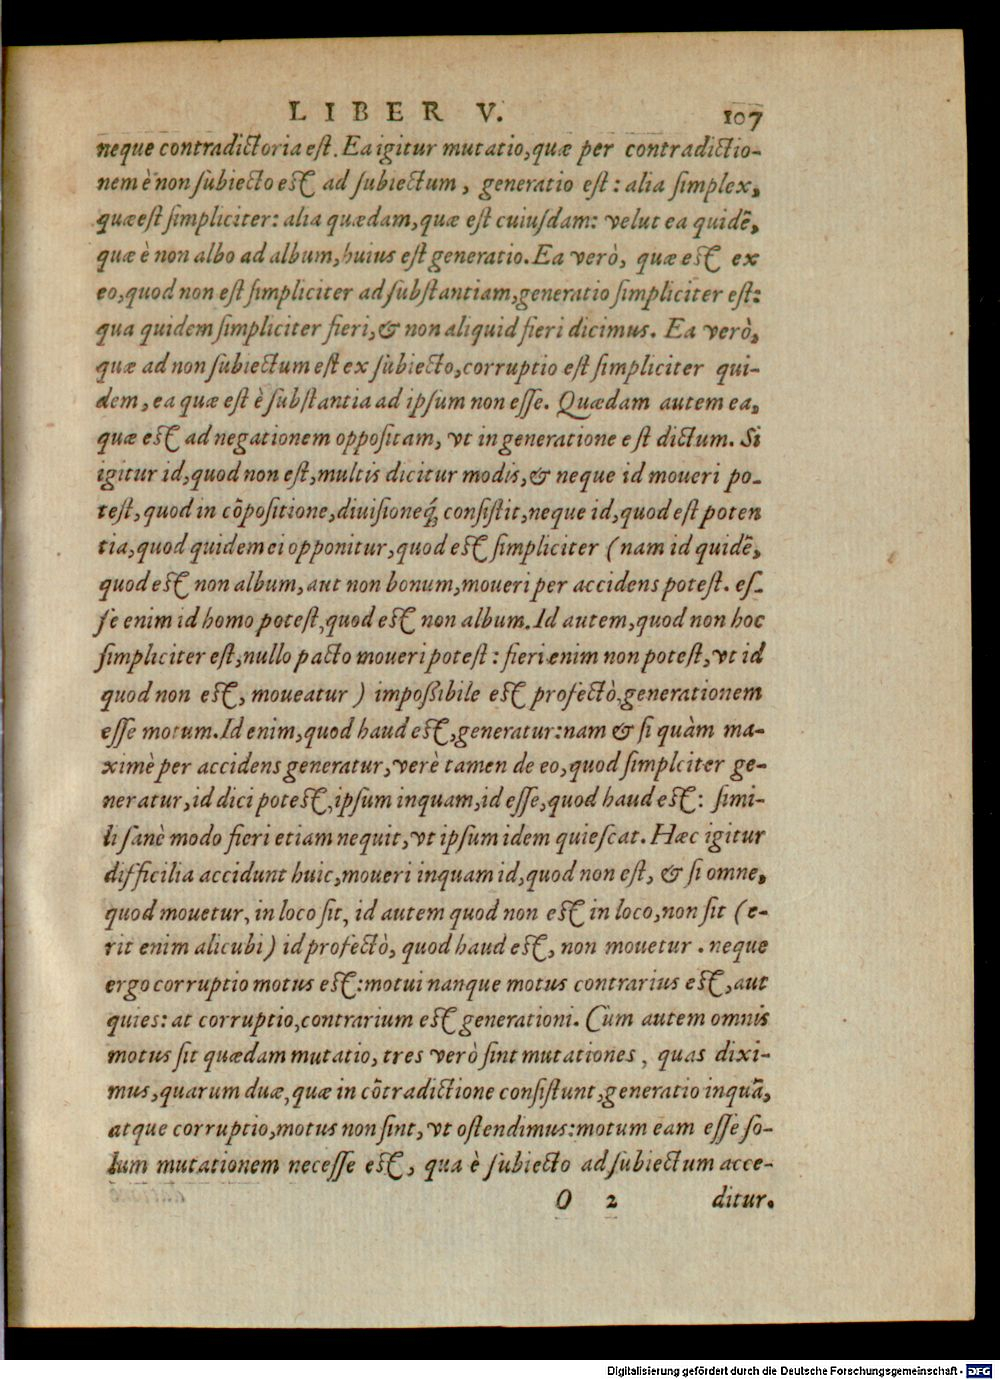 LIBER V. 107
neque contradictoria est. Ea igitur mutatio, quæ per contradictio-
nem è non subiecto est ad subiectum, generatio est: alia simplex,
quæ est simpliciter: alia quædam, quæ est cuiusdam: velut ea quidẽ,
quæ è non albo ad album, huius est generatio. Ea verò, quæ est ex
eo, quod non est simpliciter ad substantiam, generatio simpliciter est:
qua quidem simpliciter fieri, & non aliquid fieri dicimus. Ea verò,
quæ ad non subiectum est ex subiecto, corruptio est simpliciter qui-
dem, ea quæ est è substantia ad ipsum non esse. Quædam autem ea,
quæ est ad negationem oppositam, vt in generatione est dictum. Si
igitur id, quod non est, multis dicitur modis, & neque id moueri po-
test, quod in cõpositione, diuisioneq́; consistit, neque id, quod est poten
tia, quod quidem ei opponitur, quod est simpliciter (nam id quidẽ,
quod est non album, aut non bonum, moueri per accidens potest. es-
se enim id homo potest, quod est non album. Id autem, quod non hoc
simpliciter est, nullo pacto moueri potest: fieri enim non potest, vt id
quod non est, moueatur) impoßibile est profectò, generationem
esse motum. Id enim, quod haud est, generatur: nam & si quàm ma-
ximè per accidens generatur, verè tamen de eo, quod simplciter ge-
neratur, id dici potest, ipsum inquam, id esse, quod haud est: simi-
li sanè modo fieri etiam nequit, vt ipsum idem quiescat. Hæc igitur
difficilia accidunt huic, moueri inquam id, quod non est, & si omne,
quod mouetur, in loco sit, id autem quod non est in loco, non sit (e-
rit enim alicubi) id profectò, quod haud est, non mouetur. neque
ergo corruptio motus est: motui nanque motus contrarius est, aut
quies: at corruptio, contrarium est generationi. Cùm autem omnis
motus sit quædam mutatio, tres verò sint mutationes, quas dixi-
mus, quarum duæ, quæ in cõtradictione consistunt, generatio inquã,
atque corruptio, motus non sint, vt ostendimus: motum eam esse so-
lum mutationem necesse est, qua è subiecto ad subiectum acce-
O 2 ditur.
Digitalisierung gefördert durch die Deutsche Forschungsgemeinschaft - DFG